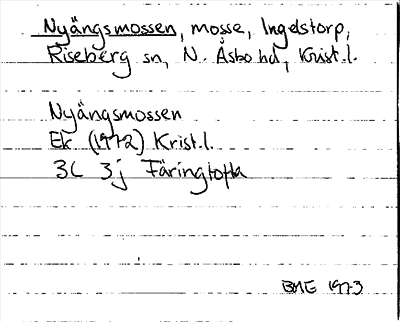 Nyängsmossen, mosse, Ingelstorp,
Riseberg sn, N. Åsbo hd, Krist.l.
Nyängsmossen
Ek (1972) Krist.l.
3C 3j Färingtofta
BME 1973